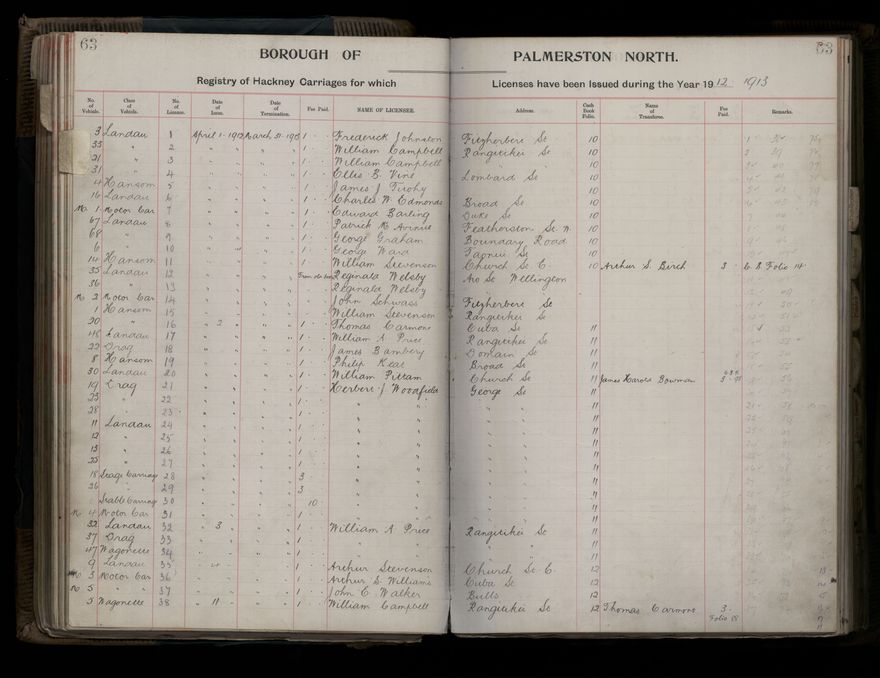 63
63
BOROUGH OF PALMERSTON NORTH.
Registry of Hackney Carriages for which Licenses have been Issued during the Year 1912 1913
No. of Vehicle. Class of Vehicle. No. of License. Date of Issue. Date of Termination. Fee Paid. NAME OF LICENSEE. Address. Cash Book Folio. Name of Transferee. Fee Paid. Remarks.
3 Landau 1 April 1 1912 March 31 1913 1 Frederick Johnston Fitzherbert St 10
33 " 2 " " " " 1 William Campbell Rangitikei St 10
21 " 3 " " " " 1 William Campbell " " 10
31 " 4 " " " " 1 Ellis B. Vine Lombard St 10
4 Hansom 5 " " " " 1 James J Tuohy 10
16 Landau 6 " " " " 1 Charles W. Edmonds Broad St 10
M 1 Motor Car 7 " " " " 1 Edward Barling Duke St 10
67 Landau 8 " " " " 1 Patrick M Featherston St. W. 10
68 " 9 " " " " 1 George Graham Boundary Road 10
6 " 10 " " " " 1 George Ward St 10
14 Hansom 11 " " " " 1 William Stevenson Church St E. 10 Arthur S. Birch 3 C. B. Folio 14
35 Landau 12 " " " " Reginald Welsby Aro St Wellington
36 " 13 " " " " Reginald Welsby " "
M 2 Motor Car 14 " " " " 1 John Schwass Fitzherbert St
1 Hansom 15 " " " " 1 William Stevenson Rangitikei St
20 " 16 " 2 " " 1 Thomas Carmont Cuba St 11
45 Landau 17 " " " " 1 William A Price Rangitikei St 11
22 Drag 18 " " " " 1 James Bambery Domain St 11
8 Hansom 19 " " " " 1 Philip Kear Broad St 11
30 Landau 20 " " " " 1 William Pittam Church St 11 James Harold Bowman 3
19 Drag 21 " " " " 1 Herbert J Woodfield George St 11
23 " 22 " " " " 1 " " " " 11
28 " 23 " " " " 1 " " " " 11
11 Landau 24 " " " " 1 " " " " 11
12 " 25 " " " " 1 " " " " 11
13 " 26 " " " " 1 " " " " 11
25 " 27 " " " " 1 " " " " 11
18 Stage Carriage 28 " " " " 3 " " " " 11
26 " 29 " " " " 3 " " " " 11
Stable Carriage 30 " " " " 10 " " " " 11
M 4 Motor Car 31 " " " " 1 " " " " 11
32 Landau 32 " 3 " " 1 William A Price Rangitikei St 11
37 Drag 33 " " " " 1 " " " " 11
47 Wagonette 34 " " " " 1 " " " " 11
9 Landau 35 " " " 1 Arthur Stevenson Church St E. 12
M 3 Motor Car 36 " " " " 1 Arthur S. Williams Cuba St 12
M 5 " " 37 " " " " 1 John C. Walker Bulls 12
5 Wagonette 38 " 11 " " 1 William Campbell Rangitikei St 12 Thomas Carmont 3
Folio 15